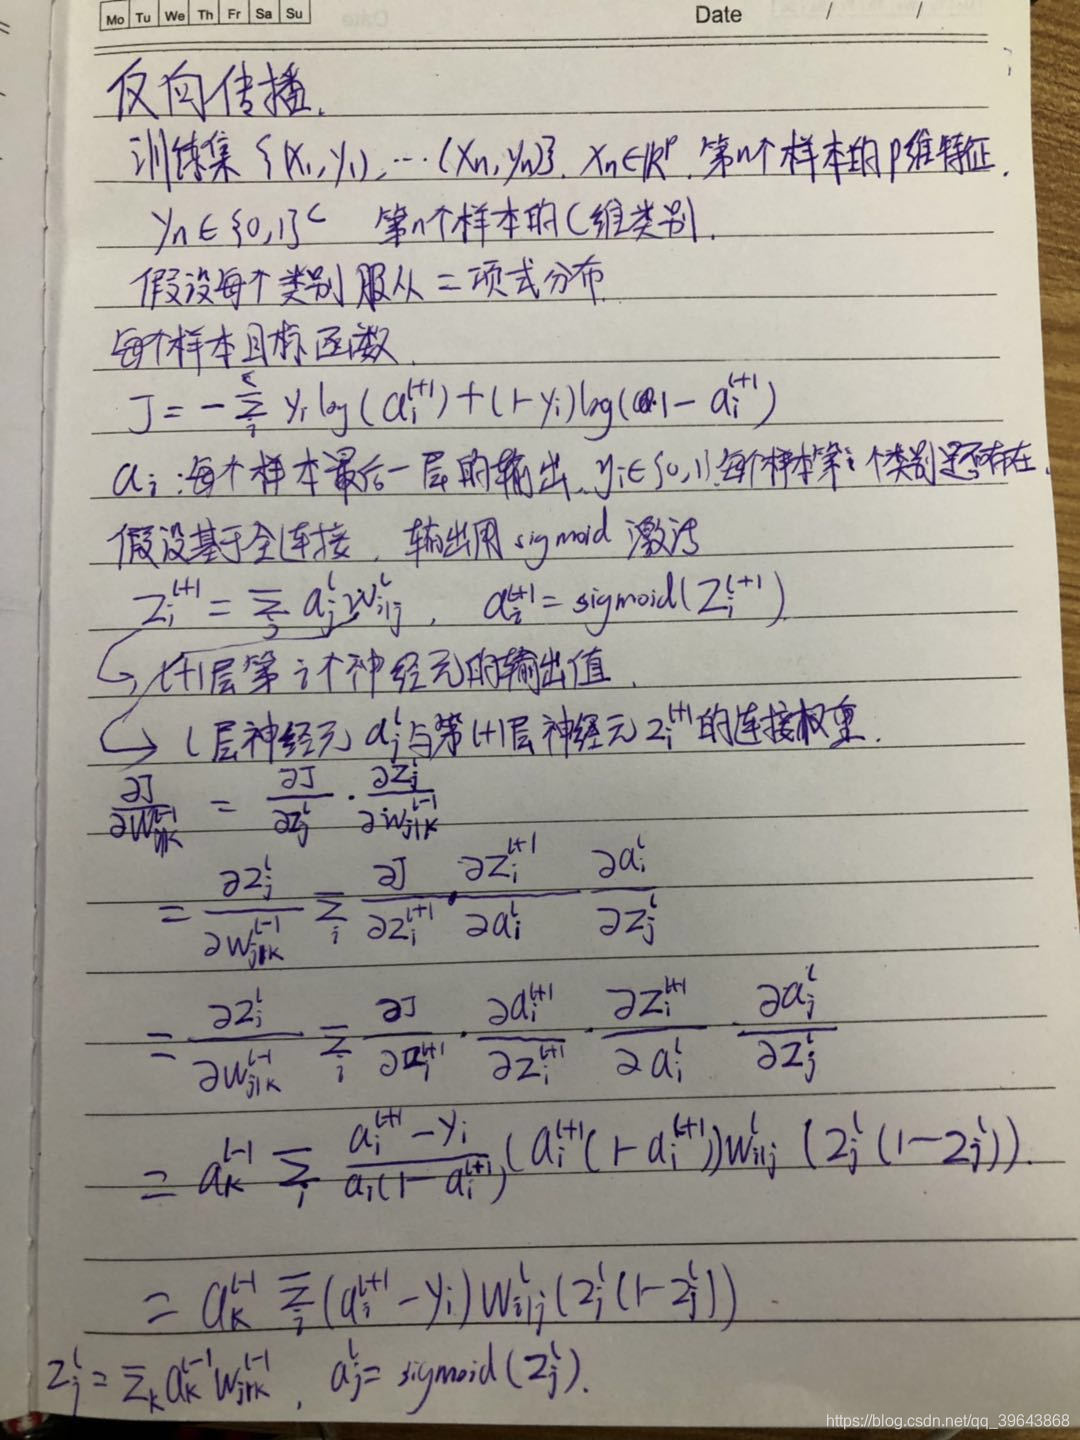 Mo Tu We Th Fr Sa Su Date / /
反向传播.
训练集 {(x₁,y₁),…(xₙ,yₙ)}. xₙ∈ℝᵖ. 第n个样本的p维特征.
yₙ∈{0,1}ᶜ 第n个样本的C维类别.
假设每个类别服从二项式分布
每个样本目标函数.
J = -Σ_i^c y_i log(a_i^{l+1}) + (1-y_i)log(1-a_i^{l+1})
a_i:每个样本最后一层的输出. y_i∈{0,1}.每个样本第i个类别是否存在.
假设基于全连接. 输出用sigmoid激活
z_i^{l+1} = Σ_j a_j^l w_{i|j}^l, a_i^{l+1} = sigmoid(z_i^{l+1})
l+1层第i个神经元的输出值.
l层神经元a_j^l与第l+1层神经元z_i^{l+1}的连接权重.
∂J/∂w_{j|k}^{l-1} = ∂J/∂z_j^l · ∂z_j^l/∂w_{j|k}^{l-1}
= ∂z_j^l/∂w_{j|k}^{l-1} Σ_i ∂J/∂z_i^{l+1} · ∂z_i^{l+1}/∂a_i^l ∂a_i^l/∂z_j^l
= ∂z_j^l/∂w_{j|k}^{l-1} Σ_i ∂J/∂z_i^{l+1} · ∂a_i^{l+1}/∂z_i^{l+1} · ∂z_i^{l+1}/∂a_i^l ∂a_j^l/∂z_j^l
= a_k^{l-1} Σ_i (a_i^{l+1}-y_i)/(a_i(1-a_i^{l+1})) (a_i^{l+1}(1-a_i^{l+1}))w_{i|j}^l (z_j^l(1-z_j^l)).
= a_k^{l-1} Σ_i (a_i^{l+1}-y_i) w_{i|j}^l (z_j^l(1-z_j^l))
z_j^l = Σ_k a_k^{l-1} w_{j|k}^{l-1}, a_j^l = sigmoid(z_j^l).
https://blog.csdn.net/qq_39643868